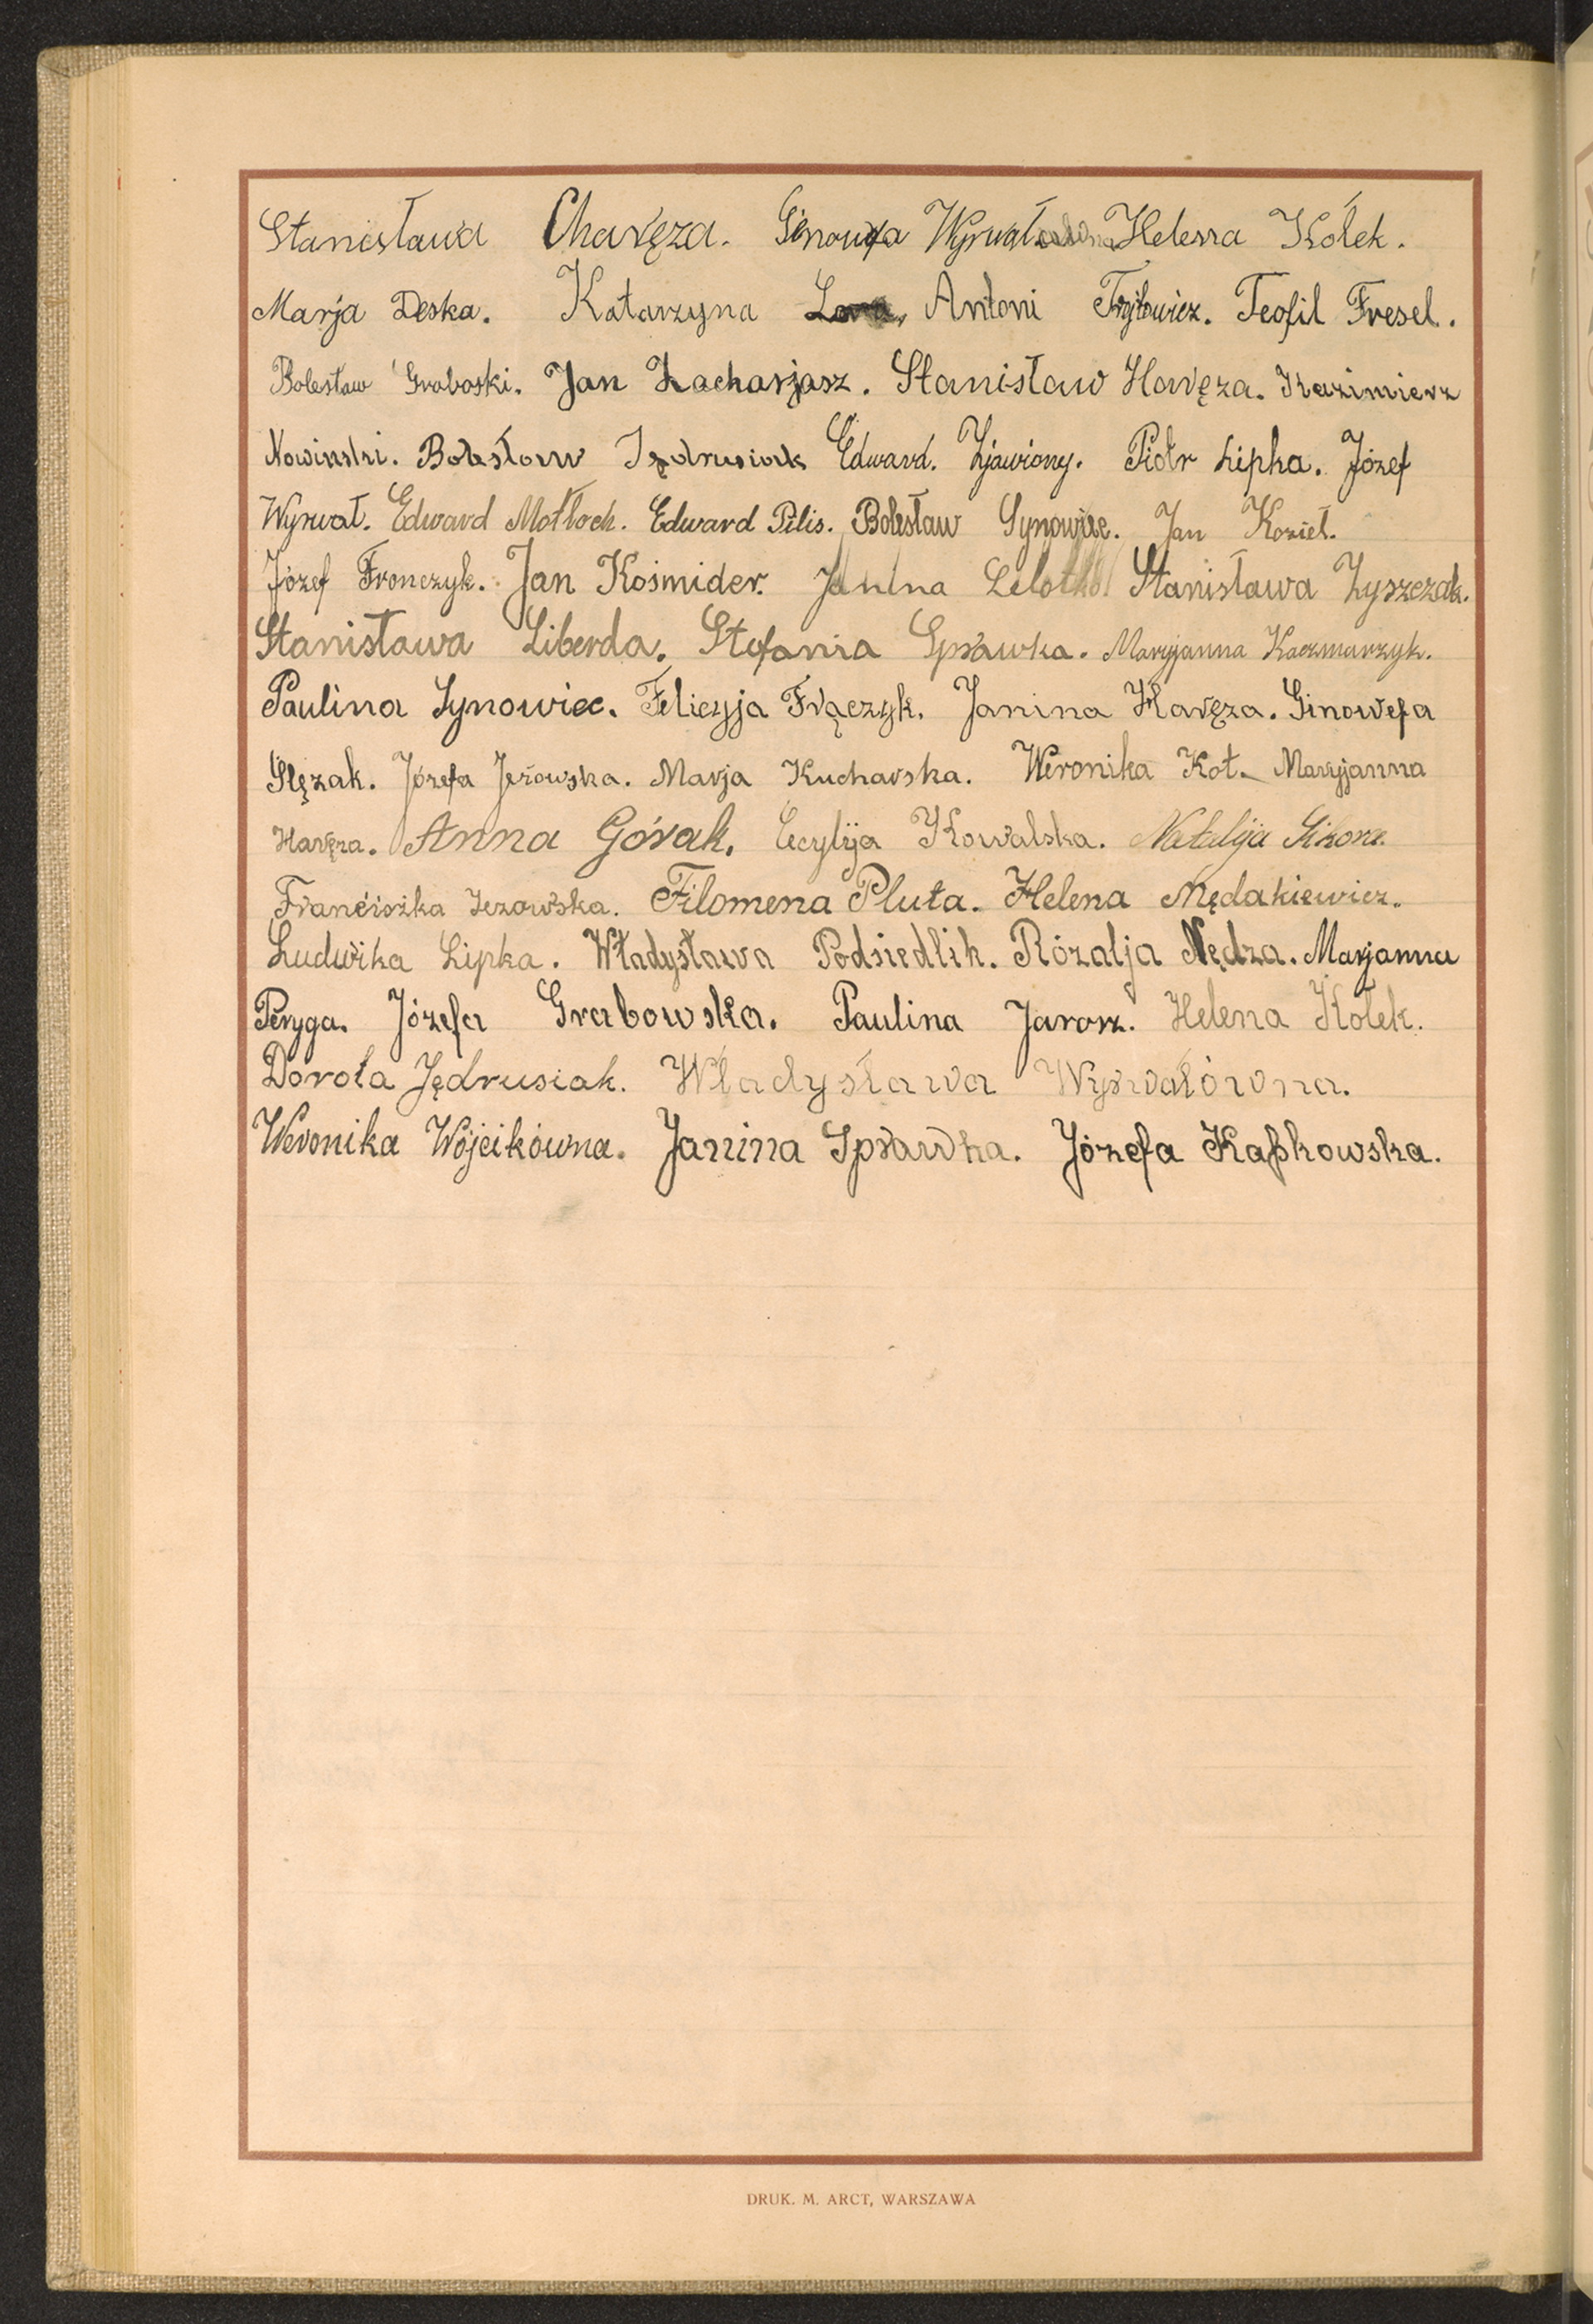 Stanisława Charęza. Genowefa Helena Kołek.
Marja Deska. Katarzyna Antoni Teofil Fresel.
Bolesław Graboski. Jan Zacharjasz. Stanisław Haręza. Kazimierz
Nowinski. Bolesław Jędrusiak Edward. Zjawiony. Piotr Lipka. Józef
Wyrwał. Edward Motłoch. Edward Pilis. Bolesław Synowiec. Jan Kozieł.
Józef Fronczyk. Jan Kośmider. Janina Stanisława Zyszczak.
Stanisława Liberda. Stefania Sprawka. Maryjanna Kaczmarzyk.
Paulina Synowiec. Felicyja Frączyk. Janina Haręza. Ginowefa
Ślęzak. Józefa Jeżowska. Marja Kucharska. Weronika Kot. Maryjanna
Haręza. Anna Górak. Cecylija Kowalska. Natalija Sikora.
Franciszka Jezowska. Filomena Pluta. Helena Mędakiewicz.
Ludwika Lipka. Władysława Podsiedlik. Rózalja Nędza. Marjanna
Peryga. Józefa Grabowska. Paulina Jarosz. Helena Kołek.
Dorota Jędrusiak. Władysława Wyrwałówna.
Weronika Wójcikówna. Janina Sprawka. Józefa Kaśkowska.
DRUK. M. ARCT, WARSZAWA